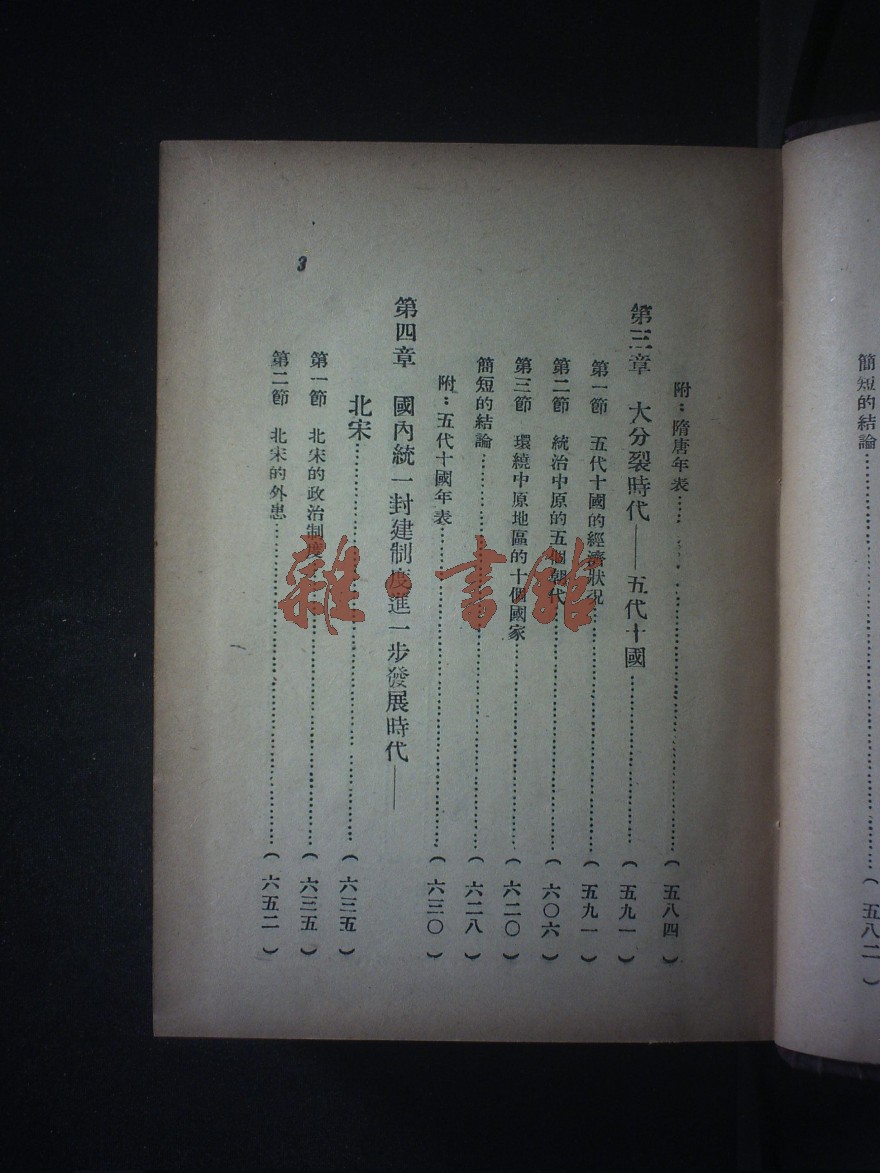 簡短的結論……(五八二)
附：隋唐年表……(五八四)
第三章　大分裂時代——五代十國……(五九一)
第一節　五代十國的經濟狀况……(五九一)
第二節　統治中原的五個朝代……(六〇六)
第三節　環繞中原地區的十個國家……(六二〇)
簡短的結論……(六二八)
附：五代十國年表……(六三〇)
第四章　國內統一封建制度進一步發展時代——
北宋……(六三五)
第一節　北宋的政治制度……(六三五)
第二節　北宋的外患……(六五二)
3
雜·書館